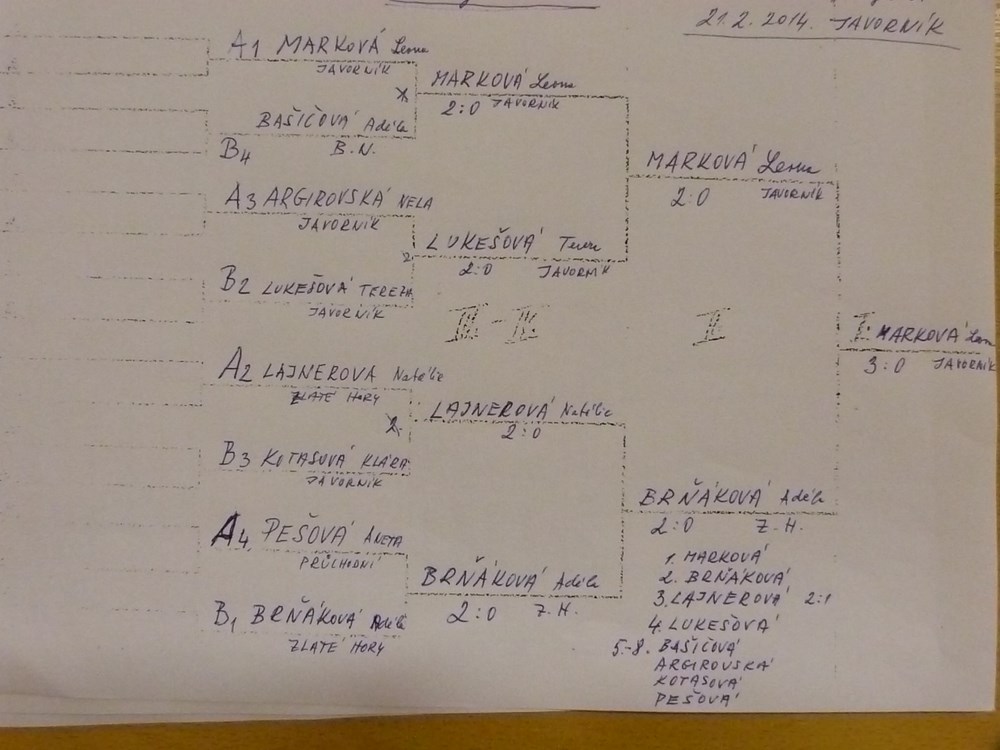 21.2.2014. JAVORNÍK
A1 MARKOVÁ Leona
JAVORNÍK
BAŠIČOVÁ Adéla
B4 B.N.
A3 ARGIROVSKÁ NELA
JAVORNÍK
B2 LUKEŠOVÁ TEREZA
JAVORNÍK
A2 LAJNEROVA Natálie
ZLATÉ HORY
B3 KOTASOVÁ KLÁRA
JAVORNÍK
A4 PEŠOVÁ ANETA
PRŮCHODNÍ
B1 BRŇÁKOVÁ Adéla
ZLATÉ HORY
MARKOVÁ Leona
2:0 JAVORNÍK
LUKEŠOVÁ Tereza
2:0 JAVORNÍK
III.-IV.
LAJNEROVÁ Natálie
2:0
BRŇÁKOVÁ Adéla
2:0 Z.H.
MARKOVÁ Leona
2:0 JAVORNÍK
II.
BRŇÁKOVÁ Adéla
2:0 Z.H.
I. MARKOVÁ Leona
3:0 JAVORNÍK
1. MARKOVÁ
2. BRŇÁKOVÁ
3. LAJNEROVÁ 2:1
4. LUKEŠOVÁ
5.-8. BAŠIČOVÁ
ARGIROVSKÁ
KOTASOVÁ
PEŠOVÁ